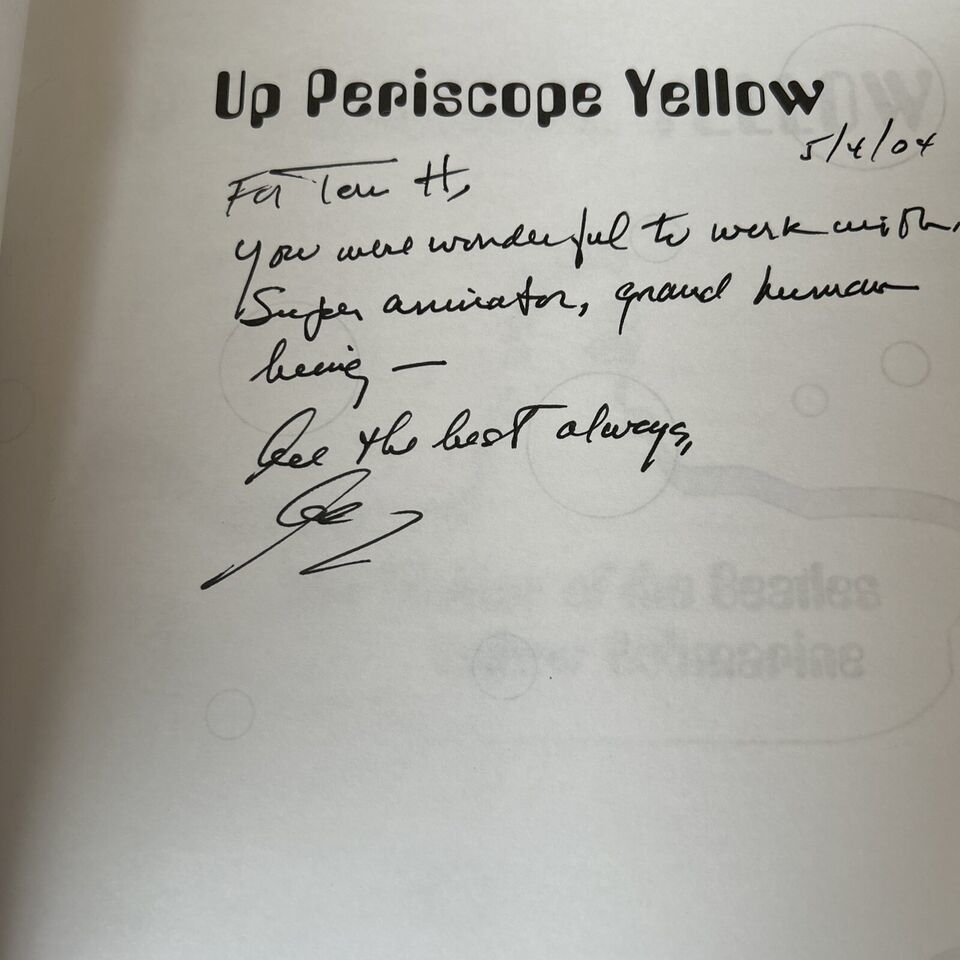 Up Periscope Yellow
5/4/04
For Tom H,
you were wonderful to work with,
Super animator, grand human
being —
All the best always,
Al
of the Beatles
Submarine